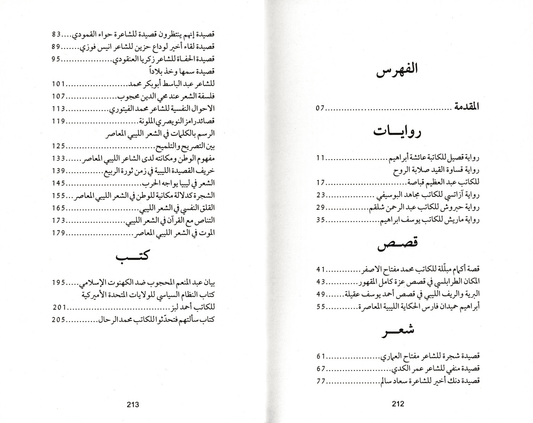 الفهرس
المقدمة ........................................ 07
روايات
رواية قصيل للكاتبة عائشة أبراهيم ........................ 11
رواية قساوة القيد صلابة الروح
للكاتب عبد العظيم قباصة ........................ 17
رواية أزاتسي للكاتب مجاهد البوسيفي ........................ 23
رواية حبروش للكاتب عبد الرحمن شلقم ........................ 29
رواية ماريش للكاتب يوسف ابراهيم ........................ 35
قصص
قصة أكمام مبللة للكاتب محمد مفتاح الاصفر ........................ 41
المكان الطرابلسي في قصص عزة كامل المقهور ........................ 43
البرية والريف الليبي في قصص أحمد يوسف عقيلة ........ 49
أبراهيم حميدان فارس الحكاية الليبية المعاصرة ........ 55
شعر
قصيدة شجرة للشاعر مفتاح العماري ........................ 61
قصيدة منفي للشاعر عمر الكدي ........................ 67
قصيدة دنك أخير للشاعرة سعاد سالم ........................ 77
212
قصيدة إنهم ينتظرون قصيدة للشاعرة حواء القمودي .... 83
قصيدة لقاء أخير لوداع حزين للشاعر انيس فوزي ....... 89
قصيدة الحفاة للشاعر زكريا العنقودي ........................ 95
قصيدة سمها وخذ بلاداً
للشاعر عبد الباسط أبوبكر محمد ........................ 101
فلسفة الشعر عند محي الدين محجوب ........................ 107
الاحوال النفسية للشاعر محمد الفيتوري ........................ 113
قصائد رامز النويصري الملونة ........................ 119
الرسم بالكلمات في الشعر الليبي المعاصر
بين التصريح والتلميح ........................ 125
مفهوم الوطن ومكانته لدى الشاعر الليبي المعاصر ....... 133
خريف القصيدة الليبية في زمن ثورة الربيع ........................ 139
الشعر في ليبيا يواجه الحرب ........................ 145
الشجرة كدلالة مكانية للوطن في الشعر الليبي المعاصر .... 155
القلق النفسي في الشعر الليبي ........................ 165
التناص مع القرآن في الشعر الليبي ........................ 173
الموت في الشعر الليبي المعاصر ........................ 179
كتب
بيان عبد المنعم المحجوب ضد الكهنوت الإسلامي ....... 195
كتاب النظام السياسي للولايات المتحدة الأميركية
للكاتب أحمد ليز ........................ 201
كتاب سألتهم فتحدّثوا للكاتب محمد الرحال ............. 205
213